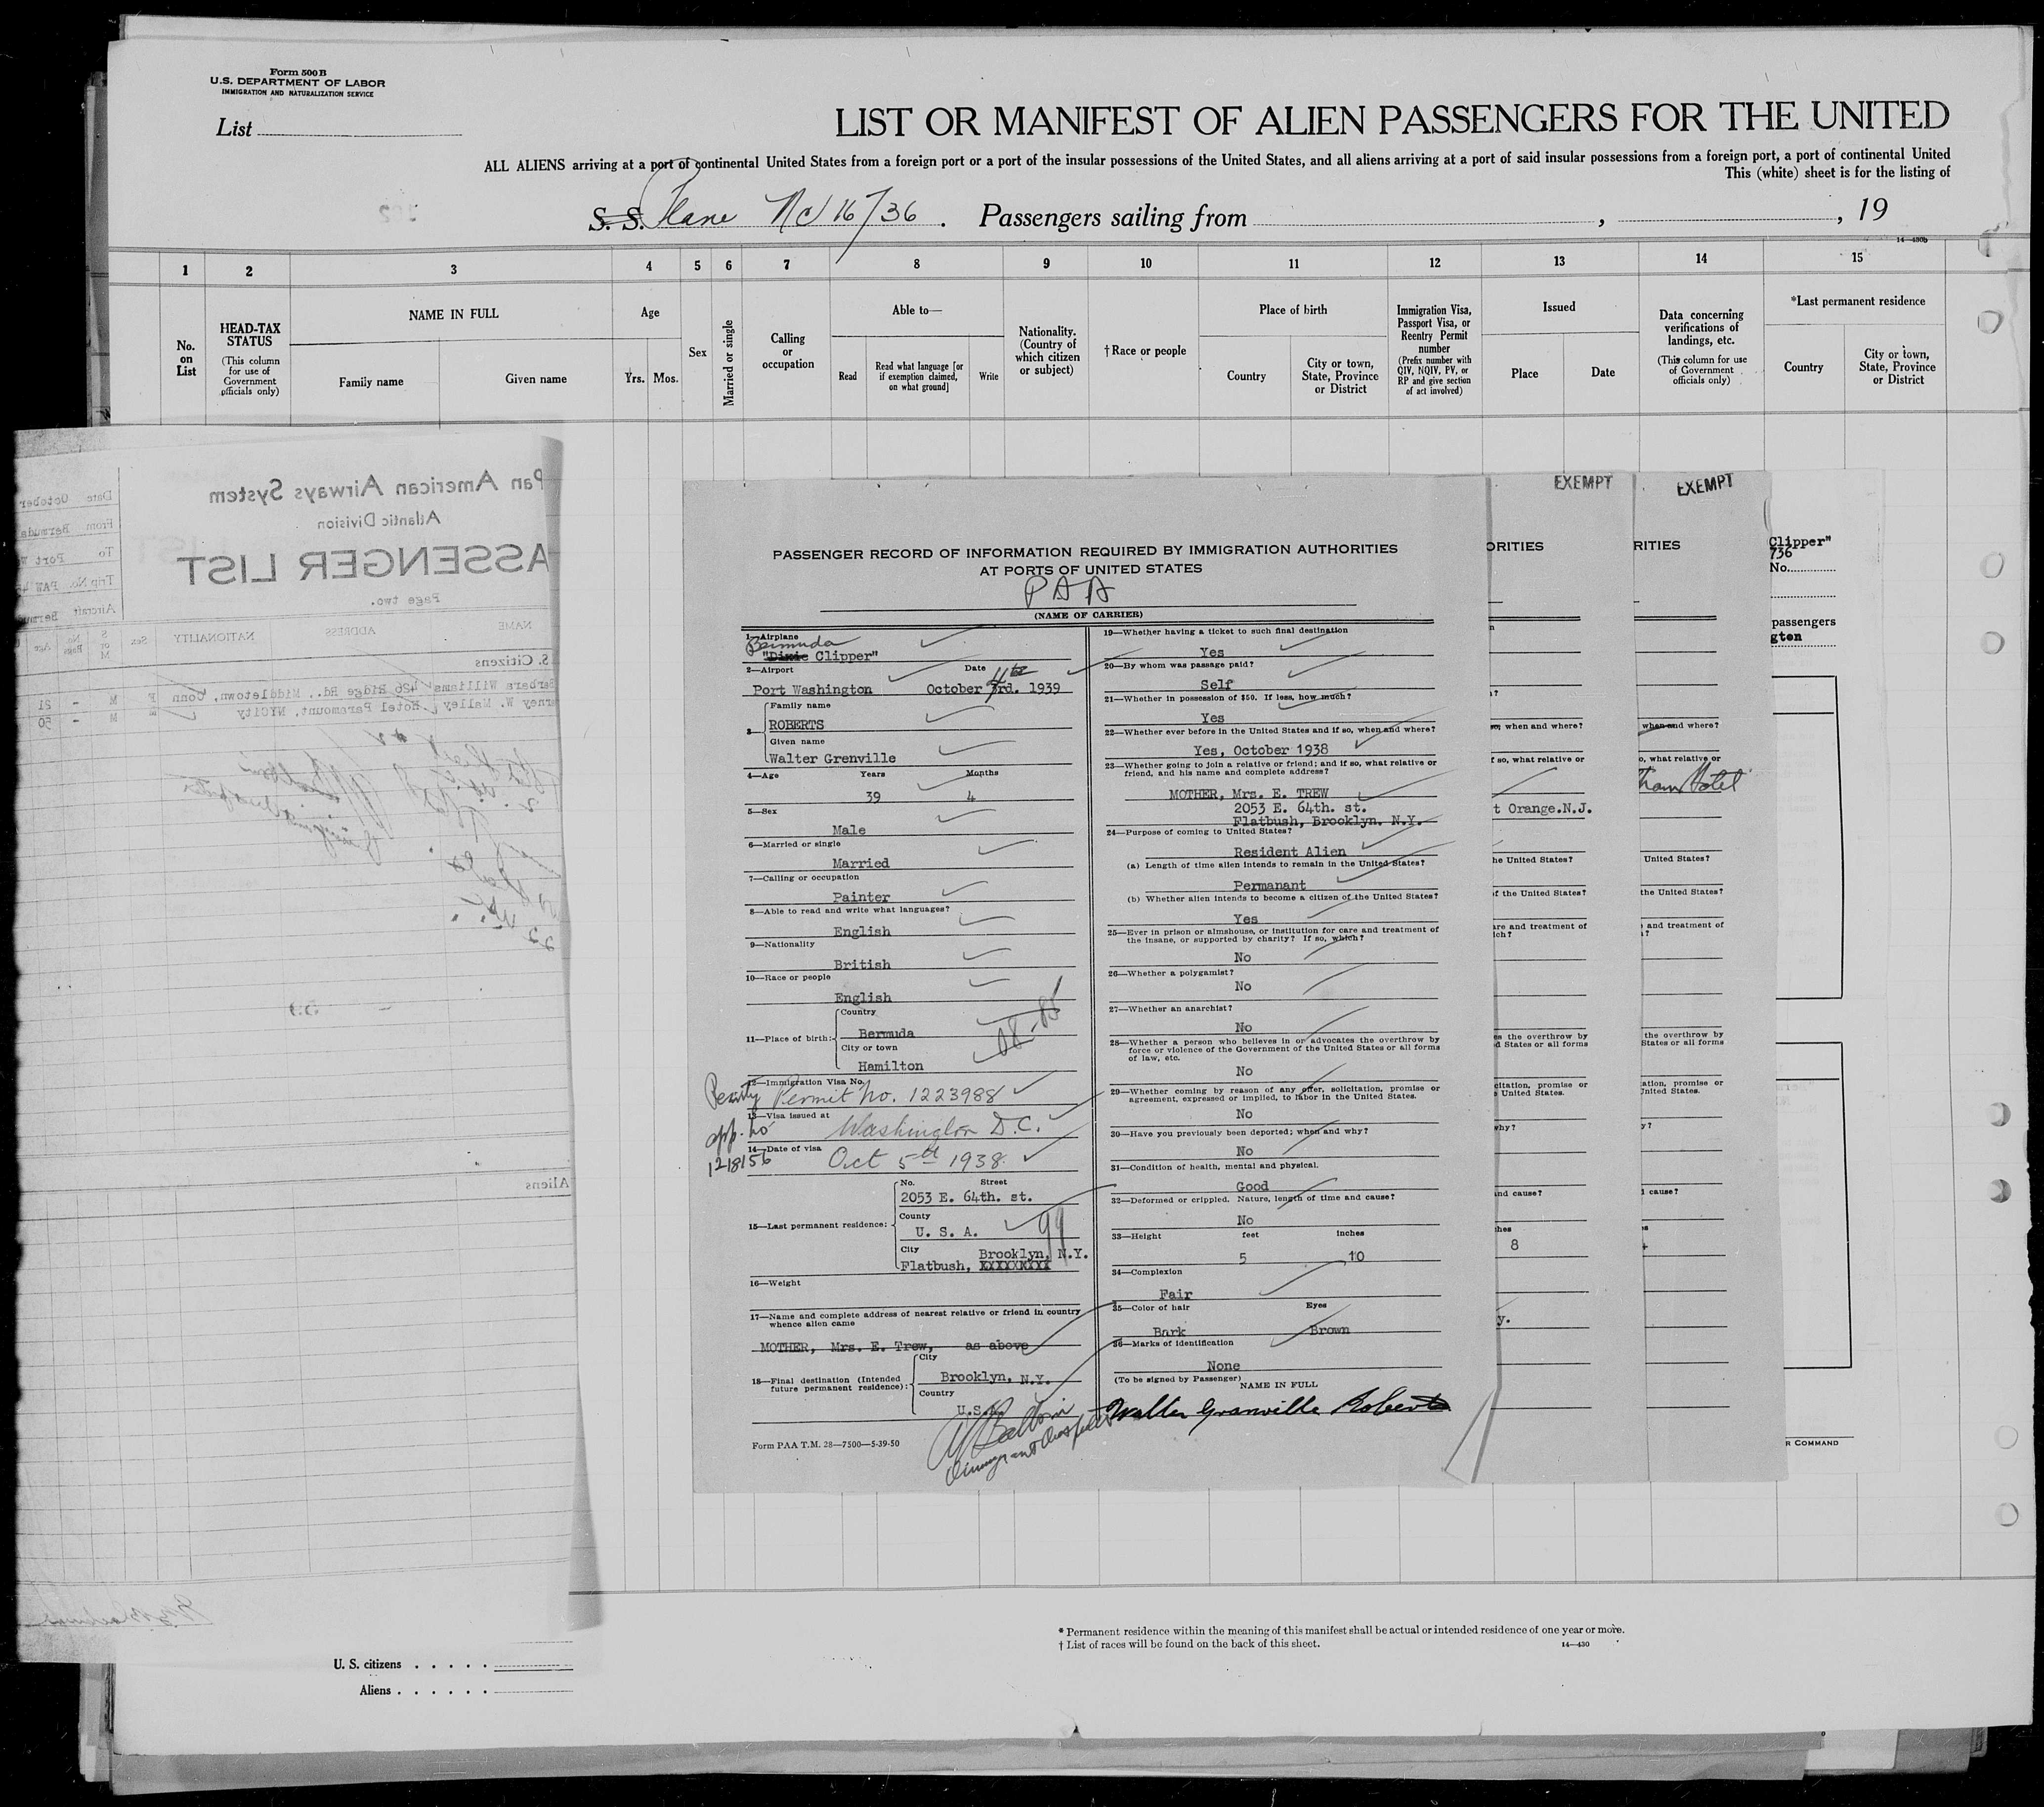 Form 500B
U.S. DEPARTMENT OF LABOR
IMMIGRATION AND NATURALIZATION SERVICE
List
LIST OR MANIFEST OF ALIEN PASSENGERS FOR THE UNITED
ALL ALIENS arriving at a port of continental United States from a foreign port or a port of the insular possessions of the United States, and all aliens arriving at a port of said insular possessions from a foreign port, a port of continental United
This (white) sheet is for the listing of
S. S. Plane NC 16736. Passengers sailing from , , 19
14—430b
1 2 3 4 5 6 7 8 9 10 11 12 13 14 15
No. on List
HEAD-TAX STATUS
(This column for use of Government officials only)
NAME IN FULL
Family name
Given name
Age
Yrs. Mos.
Sex
Married or single
Calling or occupation
Able to—
Read
Read what language [or if exemption claimed, on what ground]
Write
Nationality. (Country of which citizen or subject)
† Race or people
Place of birth
Country
City or town, State, Province or District
Immigration Visa, Passport Visa, or Reentry Permit number
(Prefix number with QIV, NQIV, PV, or RP and give section of act involved)
Issued
Place
Date
Data concerning verifications of landings, etc.
(This column for use of Government officials only)
*Last permanent residence
Country
City or town, State, Province or District
Pan American Airways System
Atlantic Division
ASSENGER LIST
Page two.
Date October
From Bermuda
To Port W
Trip No. PAW
Aircraft Bermu
NAME ADDRESS NATIONALITY Sex S or M No. Bags Age
S. Citizens
Barbara Williams 426 Ridge Rd., Middletown, Conn F M - 21
rney W. Malley Hotel Paramount, NYCity M M - 50
Aliens
PASSENGER RECORD OF INFORMATION REQUIRED BY IMMIGRATION AUTHORITIES
AT PORTS OF UNITED STATES
PAA
(NAME OF CARRIER)
1—Airplane
Bermuda
"Dixie Clipper"
2—Airport Date
4th
Port Washington October 3rd. 1939
3—
Family name
ROBERTS
Given name
Walter Grenville
4—Age Years Months
39 4
5—Sex
Male
6—Married or single
Married
7—Calling or occupation
Painter
8—Able to read and write what languages?
English
9—Nationality
British
10—Race or people
English
11—Place of birth:
Country
Bermuda
City or town
Hamilton
12—Immigration Visa No.
Permit No. 1223988
13—Visa issued at
Washington D.C.
app. no
14—Date of visa
1218156
Oct 5th 1938
15—Last permanent residence:
No. Street
2053 E. 64th. st.
County
U. S. A.
99
City
Brooklyn, N.Y.
Flatbush, XXXXXXXXX
16—Weight
17—Name and complete address of nearest relative or friend in country whence alien came
MOTHER, Mrs. E. Trew, as above
18—Final destination (Intended future permanent residence):
City
Brooklyn, N.Y.
Country
U.S.A.
Form PAA T.M. 28—7500—5-39-50
Immigrant Inspector
19—Whether having a ticket to such final destination
Yes
20—By whom was passage paid?
Self
21—Whether in possession of $50. If less, how much?
Yes
22—Whether ever before in the United States and if so, when and where?
Yes, October 1938
23—Whether going to join a relative or friend; and if so, what relative or friend, and his name and complete address?
MOTHER, Mrs. E. TREW
2053 E. 64th. st.
Flatbush, Brooklyn. N.Y.
24—Purpose of coming to United States?
Resident Alien
(a) Length of time alien intends to remain in the United States?
Permanant
(b) Whether alien intends to become a citizen of the United States?
Yes
25—Ever in prison or almshouse, or institution for care and treatment of the insane, or supported by charity? If so, which?
No
26—Whether a polygamist?
No
27—Whether an anarchist?
No
28—Whether a person who believes in or advocates the overthrow by force or violence of the Government of the United States or all forms of law, etc.
No
29—Whether coming by reason of any offer, solicitation, promise or agreement, expressed or implied, to labor in the United States.
No
30—Have you previously been deported; when and why?
No
31—Condition of health, mental and physical.
Good
32—Deformed or crippled. Nature, length of time and cause?
No
33—Height feet inches
5 10
34—Complexion
Fair
35—Color of hair Eyes
Bark Brown
36—Marks of identification
None
(To be signed by Passenger)
NAME IN FULL
Walter Granville Roberts
EXEMPT
ORITIES
so, when and where?
f so, what relative or
t Orange.N.J.
he United States?
of the United States?
are and treatment of
ich?
es the overthrow by
d States or all forms
citation, promise or
e United States.
why?
and cause?
hes
8
y.
EXEMPT
RITIES
when and where?
o, what relative or
ham Hotel
United States?
the United States?
e and treatment of
the overthrow by
States or all forms
ation, promise or
United States.
y?
d cause?
es
Clipper"
736
No.
passengers
gton
R COMMAND
* Permanent residence within the meaning of this manifest shall be actual or intended residence of one year or more.
† List of races will be found on the back of this sheet.
14—430
U. S. citizens
Aliens